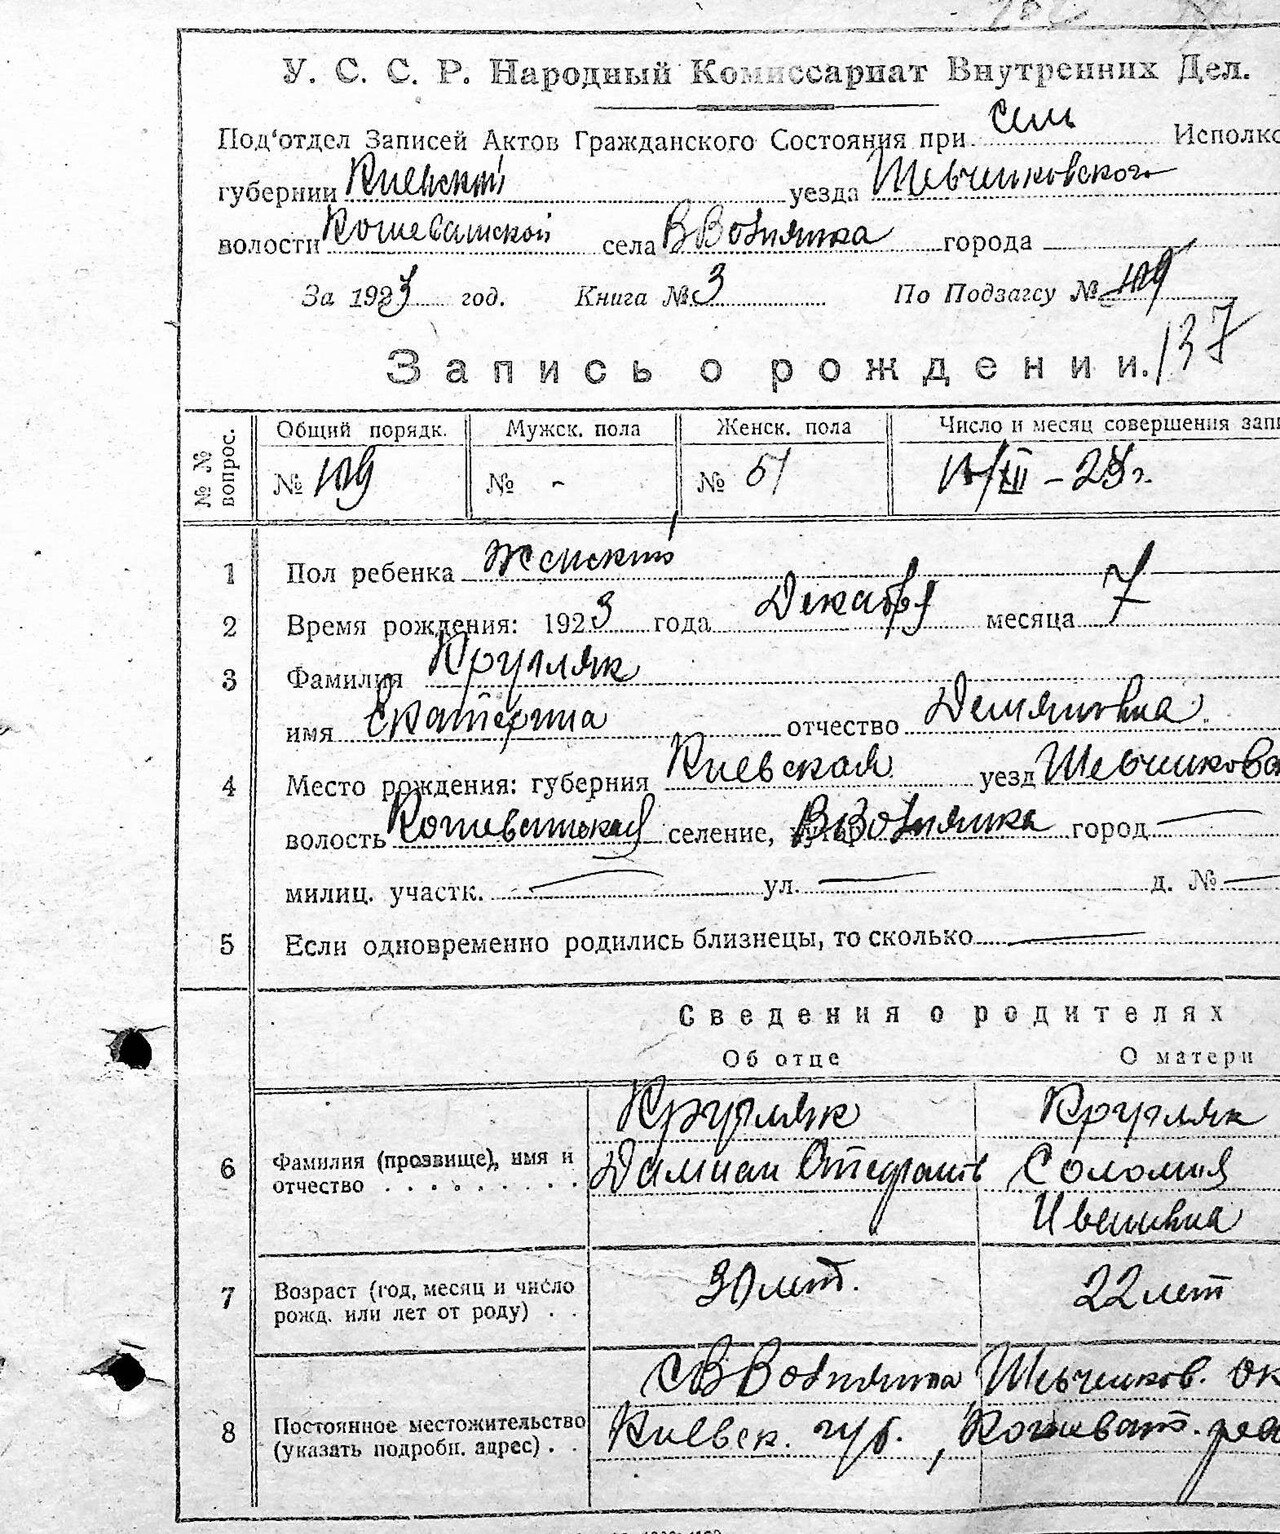 У. С. С. Р. Народный Комиссариат Внутренних Дел.
Под'отдел Записей Актов Гражданского Состояния при сель Исполко
губернии Киевской уезда Шевченковского
волости Кошеватской села ВВовнянка города —
За 1923 год. Книга № 3 По Подзагсу № 109
137
Запись о рождении.
№ № вопрос. Общий порядк. Мужск. пола Женск. пола Число и месяц совершения запи
№ 109 № - № 51
1 Пол ребенка женский
2 Время рождения: 1923 года Декабря месяца 7
3 Фамилия Кругляк
имя Екатерина отчество Демяновна
4 Место рождения: губерния Киевская уезд Шевченковск
волость Кошеватская селение, ВВовнянка город —
милиц. участк. — ул. — д. № —
5 Если одновременно родились близнецы, то сколько —
Сведения о родителях
Об отце О матери
Кругляк Кругляк
6 Фамилия (прозвище), имя и отчество Дамиан Соломия
Ивановна
7 Возраст (год, месяц и число рожд. или лет от роду) 30 лет. 22 лет
с ВВовнянка Шевченков. ок
8 Постоянное местожительство (указать подробн. адрес) Киевск. губ., Кошеват. рай